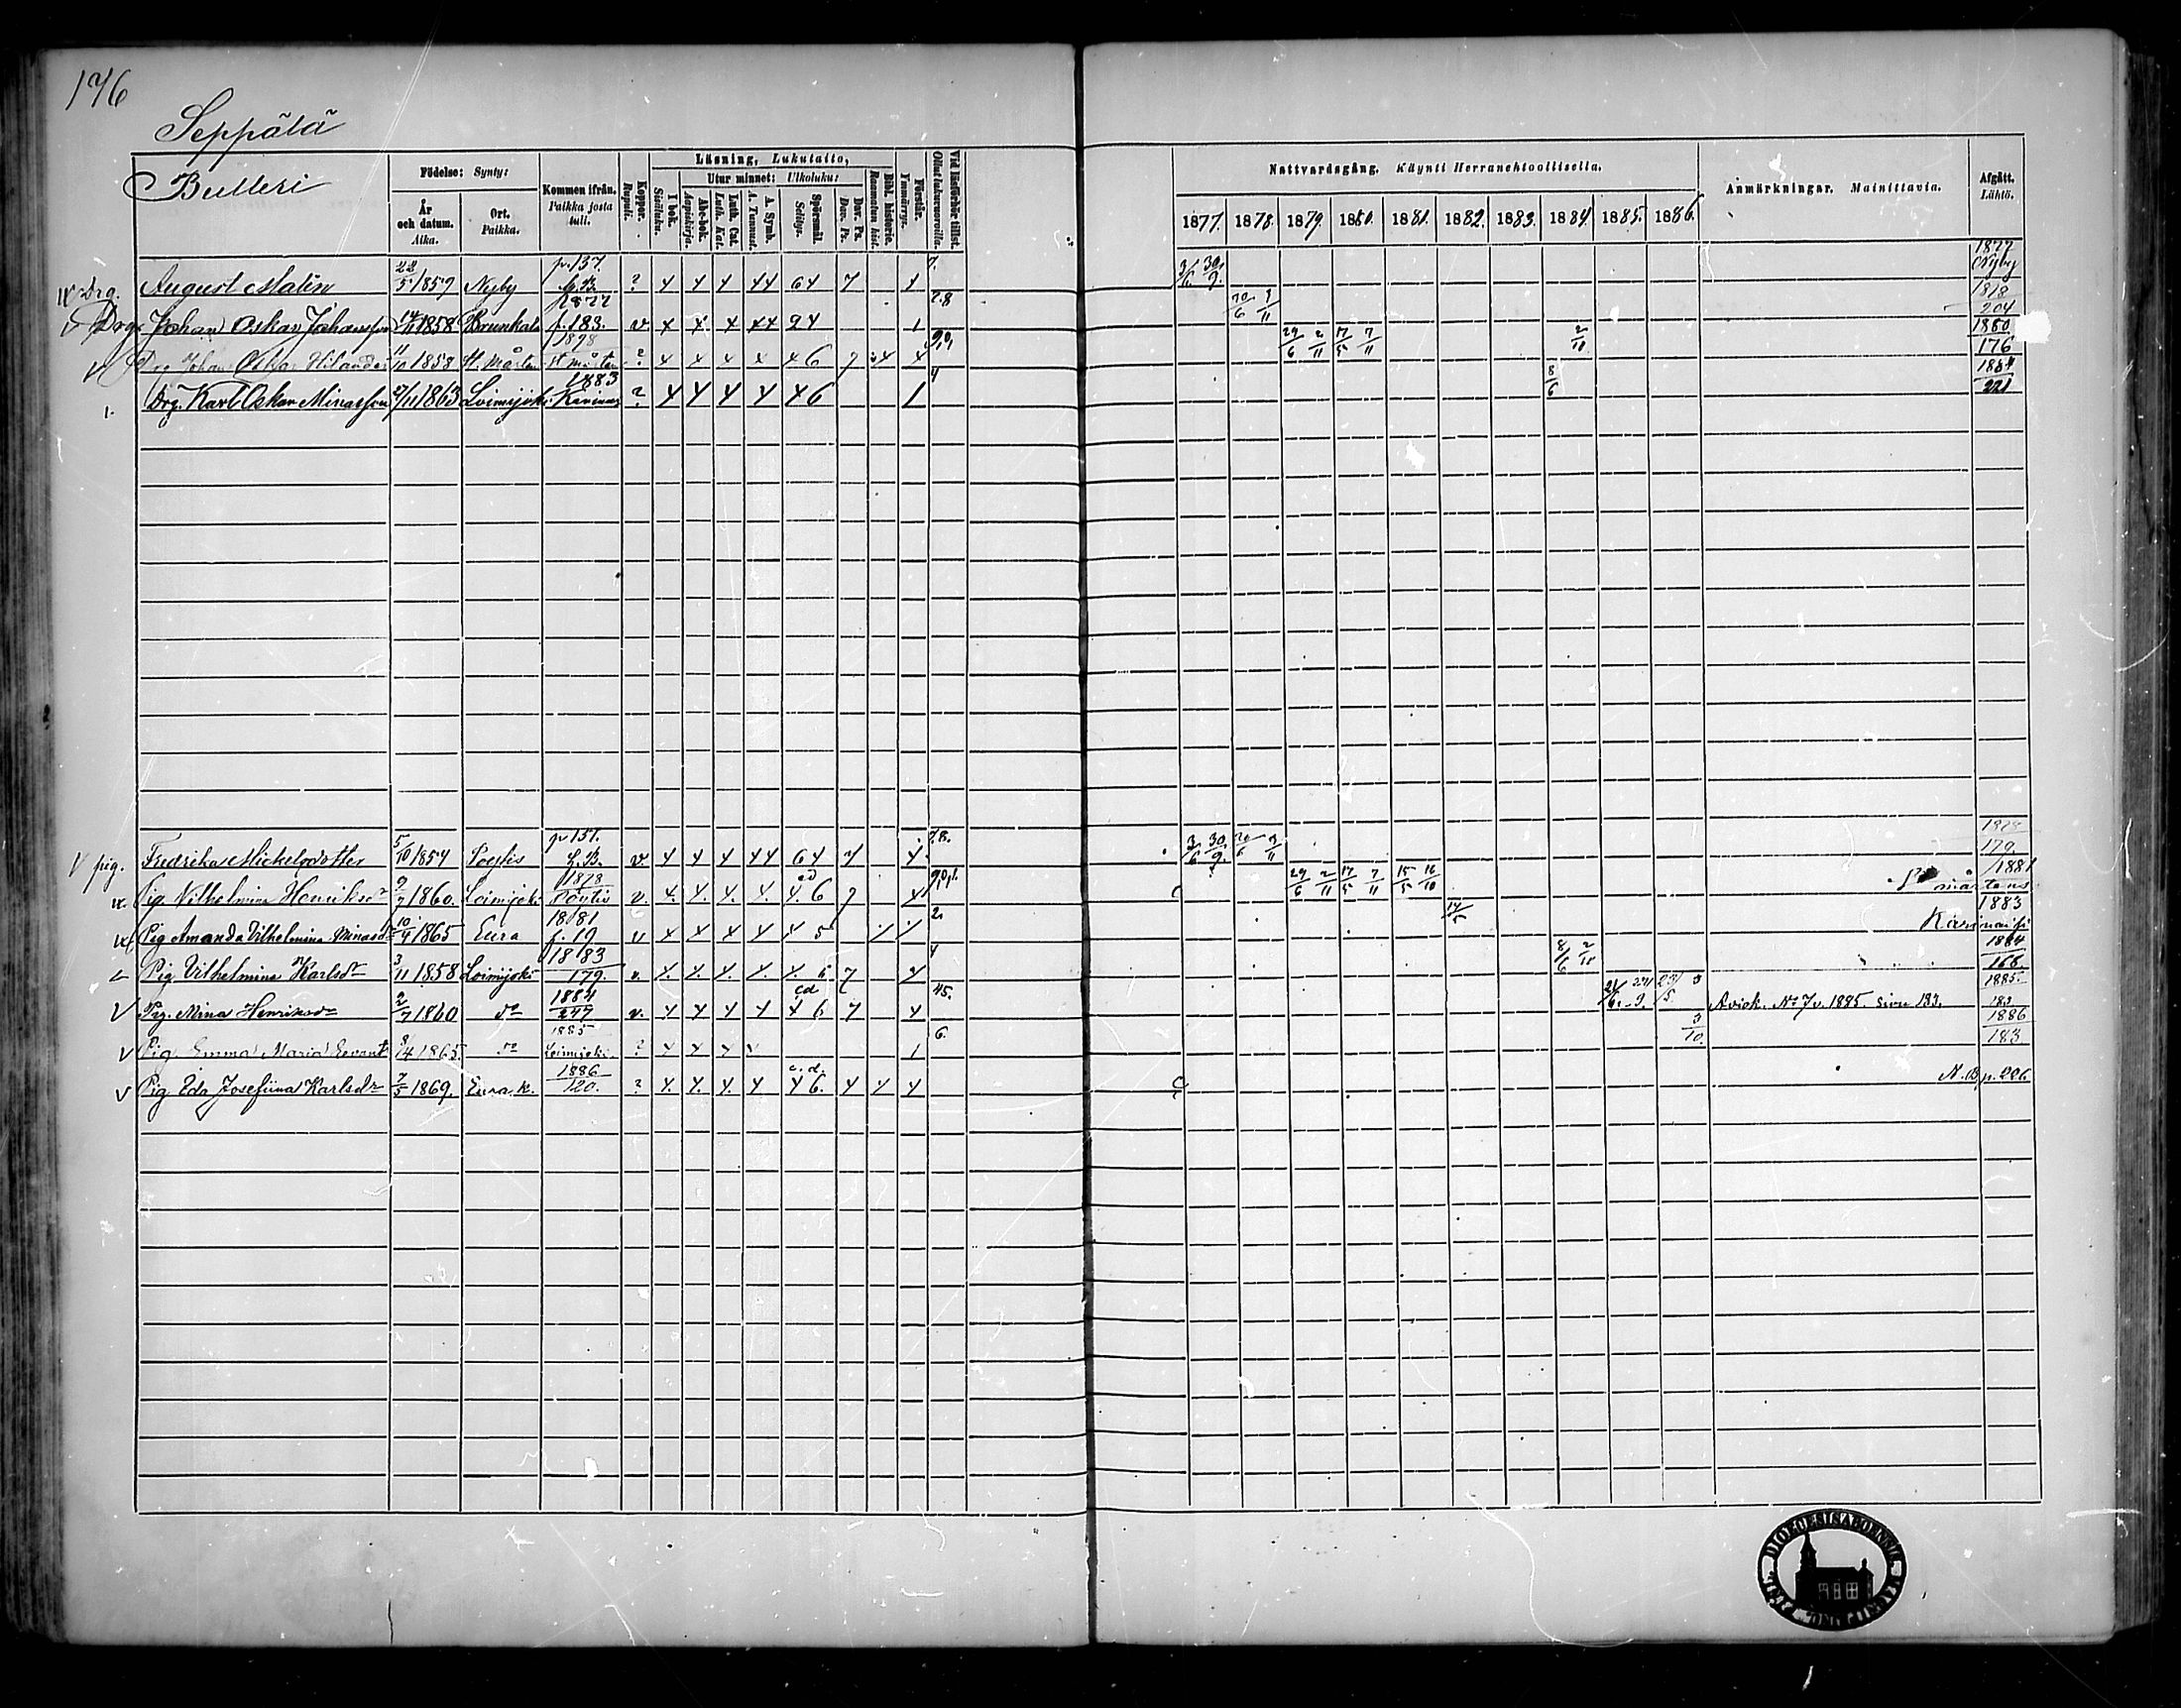 176
Seppälä
Butteri
Födelse: Synty:
År och datum. Aika.
Ort. Paikka.
Kommen ifrån. Paikka josta tuli.
Koppor. Rupuli.
Läsning, Lukutaito,
I bok. Sisäluku.
Utur minnet: Ulkoluku:
Abc-bok. Aapiskirja.
Luth. Cat. Luth. Kat.
A. Symb. A. Tunnust.
Spörsmål. Selitys.
Dav. Ps. Dav. Ps.
Bibl. historie. Raamatun hist.
Förstår. Ymmärrys.
Vid läsförhör tillst. Ollut lukuvuoroilla.
Nattvardsgång. Käynti Herranehtoollisella.
1877. 1878. 1879. 1880. 1881. 1882. 1883. 1884. 1885. 1886.
Anmärkningar. Mainittavia.
Afgått. Lähtö.
Drg. August Malin 22/5 1859 Nyby p. 137. ? 4 4 4 44 64 7 4 7. 3/6 30/9 1877 Nyby
Drg Johan Oskar Johansson 1858 p. 183. v 4 4 4 44 24 1 7.8 1878 204
Drg Johan Oskar Hilander 11/10 1858 St. Mårten 1878 St Mårten ? 4 4 4 4 4 6 7 4 4 29/6 2/11 17/5 7/11 2/11 1880 176
Drg. Karl Oskar Minasson 1863 Loimijoki 1883 ? 4 4 4 4 4 6 1 4 8/6 1884 221
pig. Fredrika Mickelsdotter 5/10 1854 Pöytis v 4 4 4 44 64 7 4 7.8. 3/6 30/9 179.
Pig Vilhelmina Henriksdr 9/7 1860. Loimijoki 1878 Pöytis v. 4. 4. 4. 4. 4. 6 7 4 29/6 2/11 17/5 7/11 15/5 16/10 mårtens 1881
Pig Amanda Vilhelmina Minasdr 10/4 1865 Eura 1881 p. 19 v 4 4 4 4 4 5 2. 14/5 1883
Pig. Vilhelmina Karlsdr 3/11 1858 Loimijoki 1883 179. v. 4. 4. 4. 4. 4. 6 7 4 4 8/6 2/11 1884 166.
Pig. Mina Henriksdr 2/7 1860 do 1884 v. 4 4 4 4 cd 4 6 7 4 45. Aviok. No 7 v. 1885. sivu 183. 1885. 183
Pig. Emma Maria 1865. do 1885 Loimijoki. ? 4 4 4 4 1 6. 3/10. 1886 183
Pig Eda Josefiina Karlsdr 7/5 1869. Eura k. 1886 120. ? 4. 4. 4. 4 c.d. 4 6. 4 4 4 N.B. p. 226.
DIOECESIS ABOENSIS